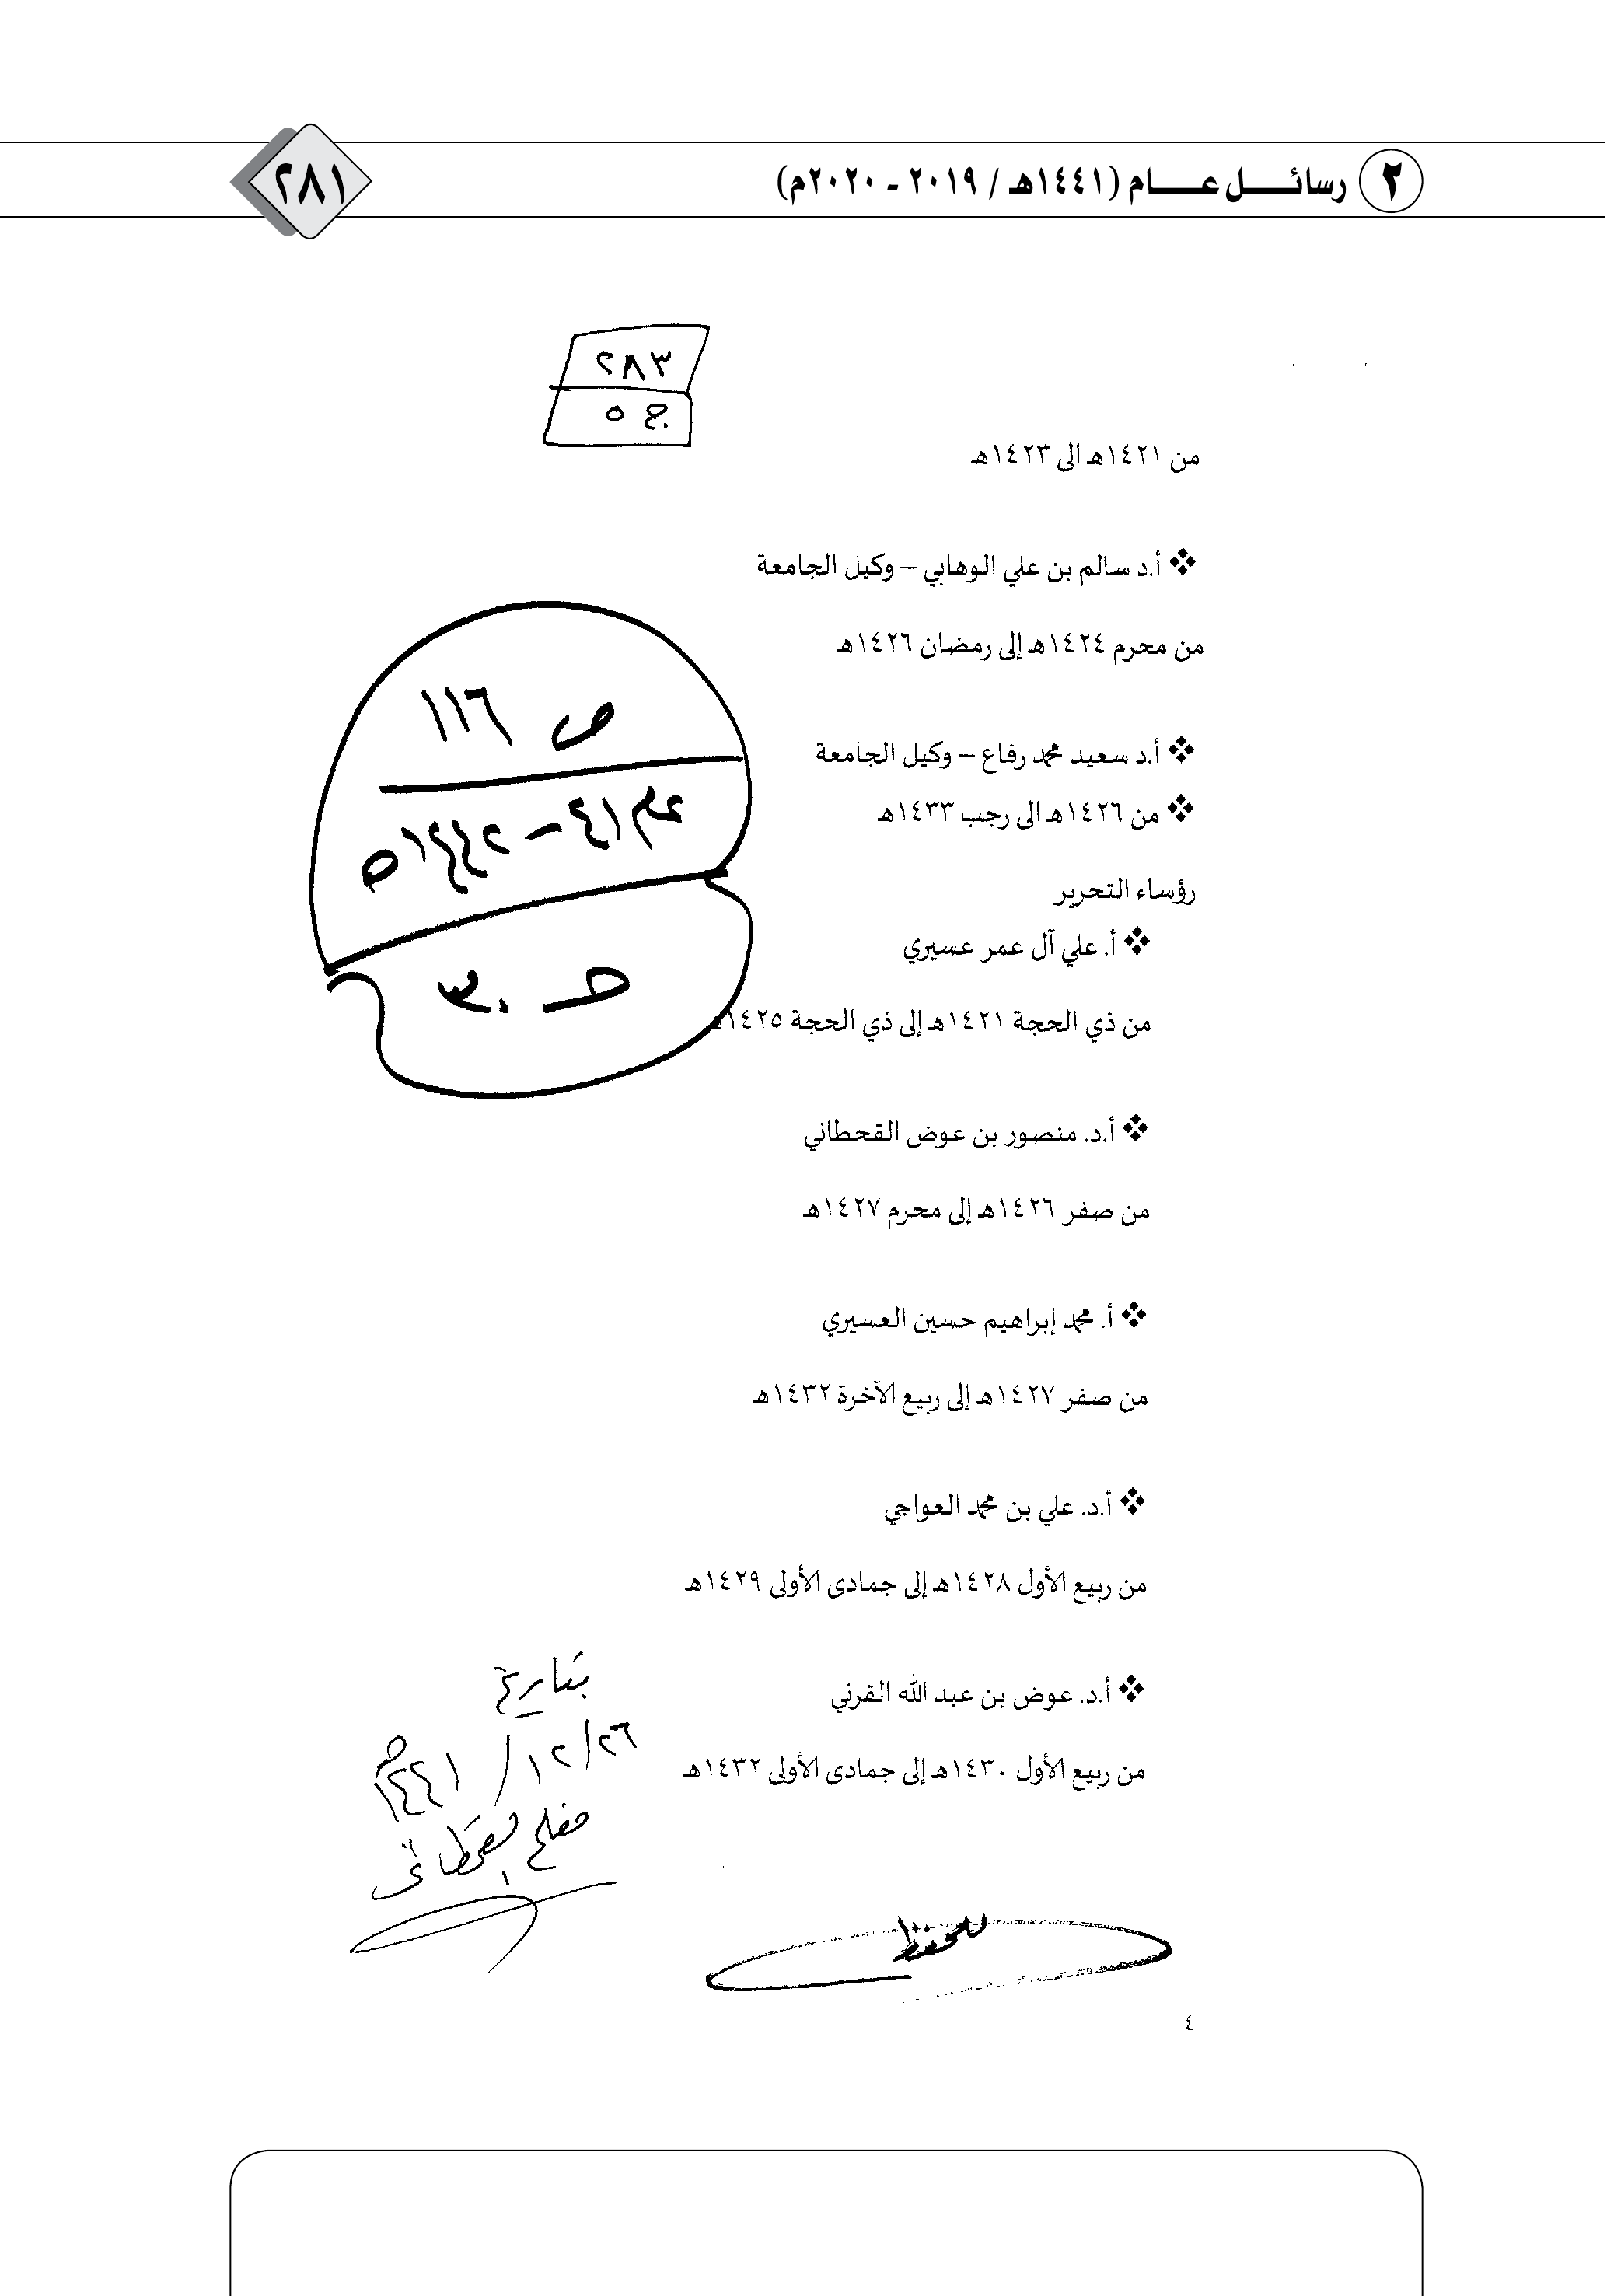 ٢ رسائل عام (١٤٤١هـ / ٢٠١٩ - ٢٠٢٠م) ٢٨١
٢٨٣
ج ٥
من ١٤٢١هـ الى ١٤٢٣هـ
❖ أ.د سالم بن علي الوهابي – وكيل الجامعة
من محرم ١٤٢٤هـ إلى رمضان ١٤٢٦هـ
ص ١١٦
❖ أ.د سعيد محمد رفاع – وكيل الجامعة
❖ من ١٤٢٦هـ الى رجب ١٤٣٣هـ
عام ٤١ – ١٤٤٢هـ
رؤساء التحرير
❖ أ. علي آل عمر عسيري
٣٠
من ذي الحجة ١٤٢١هـ إلى ذي الحجة ١٤٢٥هـ
❖ أ.د. منصور بن عوض القحطاني
من صفر ١٤٢٦هـ إلى محرم ١٤٢٧هـ
❖ أ. محمد إبراهيم حسين العسيري
من صفر ١٤٢٧هـ إلى ربيع الآخرة ١٤٣٢هـ
❖ أ.د. علي بن محمد العواجي
من ربيع الأول ١٤٢٨هـ إلى جمادى الأولى ١٤٢٩هـ
❖ أ.د. عوض بن عبد الله القرني
من ربيع الأول ١٤٣٠هـ إلى جمادى الأولى ١٤٣٢هـ
بتاريخ
٢٦/١٢/١٤٤١هـ
مفلح القحطاني
للحفظ
٤